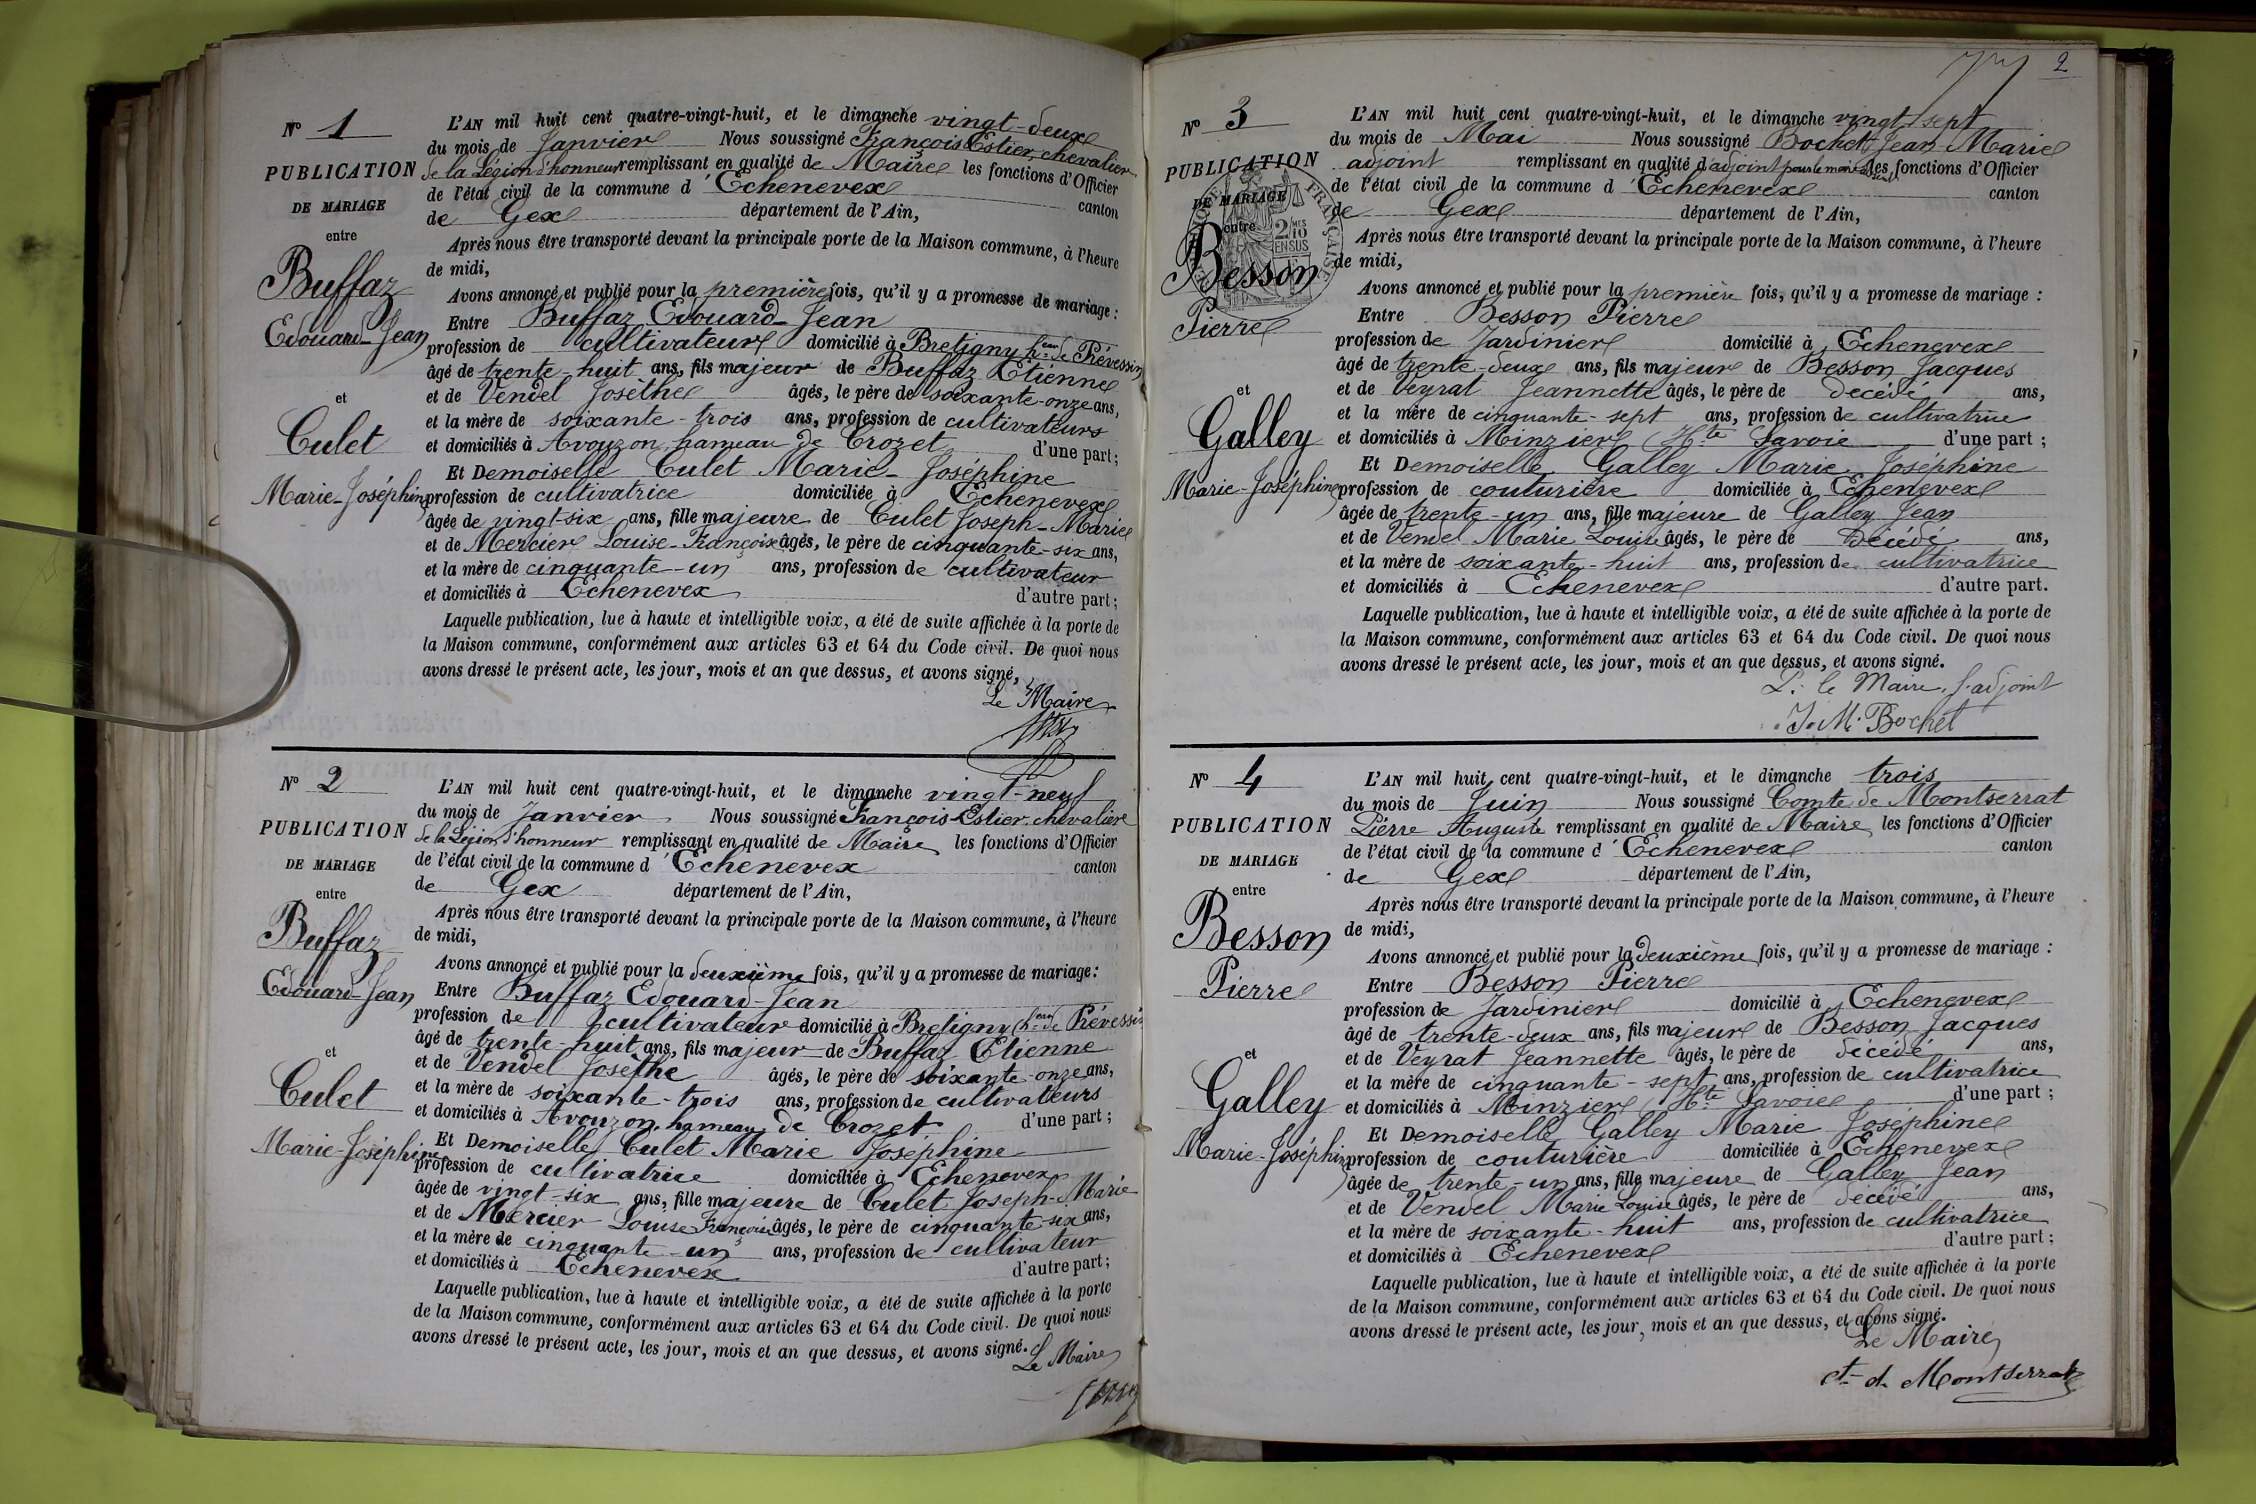 N° 1
PUBLICATION
DE MARIAGE
entre
Buffaz
Edouard-Jean
et
Culet
Marie-Joséphine
L'AN mil huit cent quatre-vingt-huit, et le dimanche vingt-deux
du mois de Janvier Nous soussigné François Estier, chevalier
de la Légion d'honneur remplissant en qualité de Maire les fonctions d'Officier
de l'état civil de la commune d'Echenevex canton
de Gex département de l'Ain,
Après nous être transporté devant la principale porte de la Maison commune, à l'heure
de midi,
Avons annoncé et publié pour la première fois, qu'il y a promesse de mariage :
Entre Buffaz Edouard-Jean
profession de cultivateur domicilié à Bretigny h.eau de Prévessin
âgé de trente-huit ans, fils majeur de Buffaz Etienne
et de Vendel Josèthe âgés, le père de soixante-onze ans,
et la mère de soixante-trois ans, profession de cultivateurs
et domiciliés à Avouzon, hameau de Crozet d'une part;
Et Demoiselle Culet Marie-Joséphine
profession de cultivatrice domiciliée à Echenevex
âgée de vingt-six ans, fille majeure de Culet Joseph-Marie
et de Mercier Louise-Françoise âgés, le père de cinquante-six ans,
et la mère de cinquante-un ans, profession de cultivateur
et domiciliés à Echenevex d'autre part;
Laquelle publication, lue à haute et intelligible voix, a été de suite affichée à la porte de
la Maison commune, conformément aux articles 63 et 64 du Code civil. De quoi nous
avons dressé le présent acte, les jour, mois et an que dessus, et avons signé,
Le Maire
N° 2
PUBLICATION
DE MARIAGE
entre
Buffaz
Edouard-Jean
et
Culet
Marie-Joséphine
L'AN mil huit cent quatre-vingt-huit, et le dimanche vingt-neuf
du mois de Janvier Nous soussigné François Estier chevalier
de la Légion d'honneur remplissant en qualité de Maire les fonctions d'Officier
de l'état civil de la commune d'Echenevex canton
de Gex département de l'Ain,
Après nous être transporté devant la principale porte de la Maison commune, à l'heure
de midi,
Avons annoncé et publié pour la deuxième fois, qu'il y a promesse de mariage:
Entre Buffaz Edouard-Jean
profession de cultivateur domicilié à Bretigny h.eau de Prévessin
âgé de trente-huit ans, fils majeur de Buffaz Etienne
et de Vendel Josèthe âgés, le père de soixante-onze ans,
et la mère de soixante-trois ans, profession de cultivateurs
et domiciliés à Avouzon, hameau de Crozet d'une part ;
Et Demoiselle Culet Marie Joséphine
profession de cultivatrice domiciliée à Echenevex
âgée de vingt-six ans, fille majeure de Culet Joseph-Marie
et de Mercier Louise Françoise âgés, le père de cinquante-six ans,
et la mère de cinquante-un ans, profession de cultivateur
et domiciliés à Echenevex d'autre part;
Laquelle publication, lue à haute et intelligible voix, a été de suite affichée à la porte
de la Maison commune, conformément aux articles 63 et 64 du Code civil. De quoi nous
avons dressé le présent acte, les jour, mois et an que dessus, et avons signé.
Le Maire
2
N° 3
PUBLICATION
DE MARIAGE
entre
Besson
Pierre
et
Galley
Marie-Joséphine
FRANÇAISE
2/10
EN SUS
L'AN mil huit cent quatre-vingt-huit, et le dimanche vingt-sept
du mois de Mai Nous soussigné Bochet Jean-Marie
adjoint remplissant en qualité d'adjoint pour le maire les fonctions d'Officier
de l'état civil de la commune d'Echenevex canton
de Gex département de l'Ain,
Après nous être transporté devant la principale porte de la Maison commune, à l'heure
de midi,
Avons annoncé et publié pour la première fois, qu'il y a promesse de mariage :
Entre Besson Pierre
profession de Jardinier domicilié à Echenevex
âgé de trente-deux ans, fils majeur de Besson Jacques
et de Veyrat Jeannette âgés, le père de décédé ans,
et la mère de cinquante-sept ans, profession de cultivatrice
et domiciliés à Minzier (Hte Savoie d'une part ;
Et Demoiselle Galley Marie Joséphine
profession de couturière domiciliée à Echenevex
âgée de trente-un ans, fille majeure de Galley Jean
et de Vendel Marie Louise âgés, le père de décédé ans,
et la mère de soixante-huit ans, profession de cultivatrice
et domiciliés à Echenevex d'autre part.
Laquelle publication, lue à haute et intelligible voix, a été de suite affichée à la porte de
la Maison commune, conformément aux articles 63 et 64 du Code civil. De quoi nous
avons dressé le présent acte, les jour, mois et an que dessus, et avons signé.
P. le Maire, l'adjoint
J. M. Bochet
N° 4
PUBLICATION
DE MARIAGE
entre
Besson
Pierre
et
Galley
Marie-Joséphine
L'AN mil huit cent quatre-vingt-huit, et le dimanche trois
du mois de Juin Nous soussigné Comte de Montserrat
Pierre Auguste remplissant en qualité de Maire les fonctions d'Officier
de l'état civil de la commune d'Echenevex canton
de Gex département de l'Ain,
Après nous être transporté devant la principale porte de la Maison commune, à l'heure
de midi,
Avons annoncé et publié pour la deuxième fois, qu'il y a promesse de mariage :
Entre Besson Pierre
profession de Jardinier domicilié à Echenevex
âgé de trente-deux ans, fils majeur de Besson Jacques
et de Veyrat Jeannette âgés, le père de décédé ans,
et la mère de cinquante-sept ans, profession de cultivatrice
et domiciliés à Minzier (Hte Savoie d'une part ;
Et Demoiselle Galley Marie Joséphine
profession de couturière domiciliée à Echenevex
âgée de trente-un ans, fille majeure de Galley Jean
et de Vendel Marie Louise âgés, le père de décédé ans,
et la mère de soixante-huit ans, profession de cultivatrice
et domiciliés à Echenevex d'autre part ;
Laquelle publication, lue à haute et intelligible voix, a été de suite affichée à la porte
de la Maison commune, conformément aux articles 63 et 64 du Code civil. De quoi nous
avons dressé le présent acte, les jour, mois et an que dessus, et avons signé.
Le Maire
Ct de Montserrat